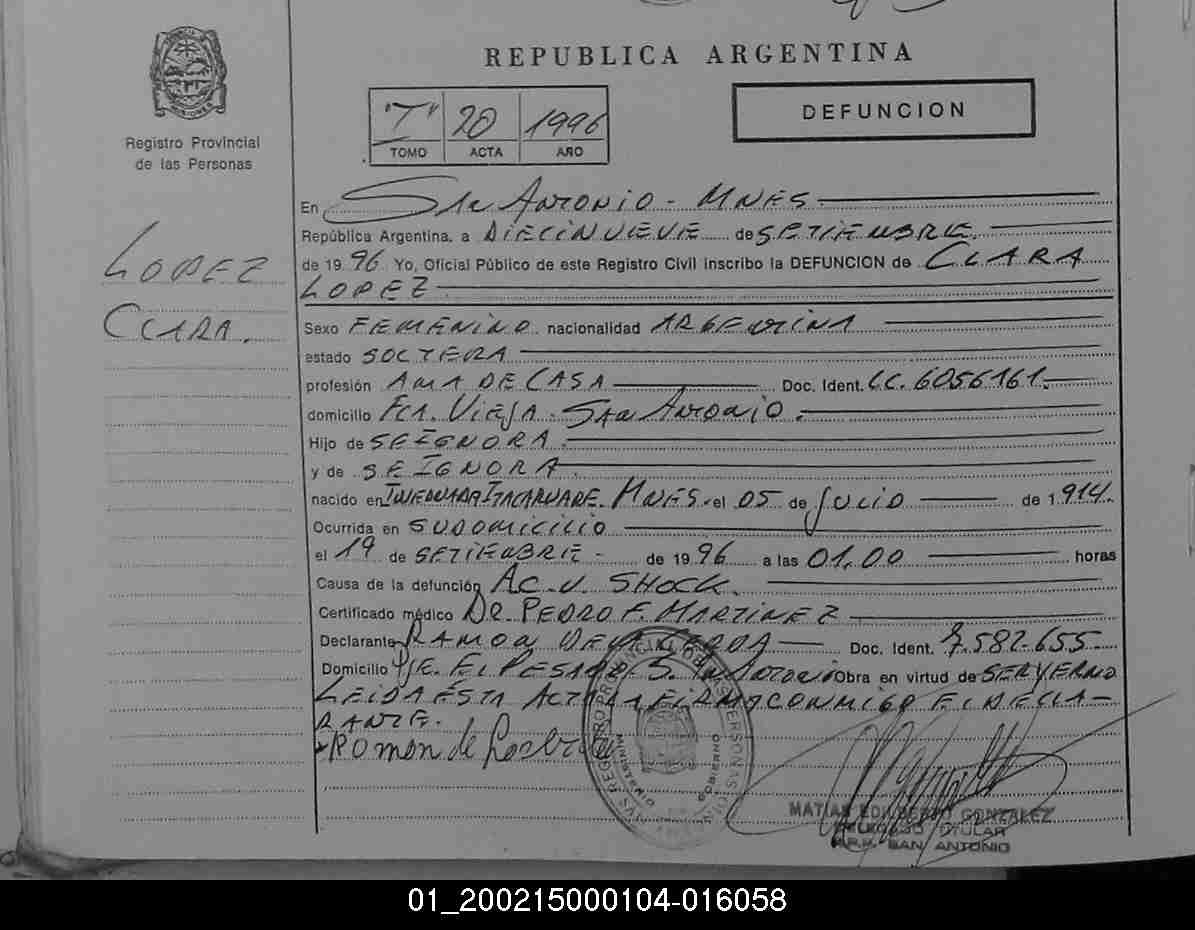 REPUBLICA ARGENTINA
Registro Provincial
de las Personas
"I" 20 1996
TOMO ACTA AÑO
DEFUNCION
LOPEZ
CLARA.
En San Antonio - MNES
República Argentina, a DIECINUEVE de SETIEMBRE.
de 19 96 Yo, Oficial Público de este Registro Civil inscribo la DEFUNCION de CLARA
LOPEZ
Sexo FEMENINO nacionalidad ARGENTINA
estado SOLTERA
profesión AMA DE CASA Doc. Ident. LC. 6056161.
domicilio Fca. VIEJA - SAN ANTONIO.
Hijo de SE IGNORA.
y de SE IGNORA.
nacido en ITACARUARE. MNES. el 05 de JULIO de 1.914.
Ocurrida en SU DOMICILIO
el 19 de SETIEMBRE - de 19 96 a las 01.00 horas
Causa de la defunción AC. V. SHOCK.
Certificado médico DR. PEDRO F. MARTINEZ
Declarante RAMON DE LA CERDA Doc. Ident. 7.582.655
Domicilio EL PESADO S. ANTONIO Obra en virtud de SER YERNO
LEIDA ESTA ACTA LA FIRMA CONMIGO EL DECLA-
RANTE.
Ramon de
REGISTRO PROVINCIAL DE LAS PERSONAS
MINISTERIO GOBIERNO
MATIAS EDILBERTO GONZALEZ
DELEGADO TITULAR
R.P.P. SAN ANTONIO
01_200215000104-016058